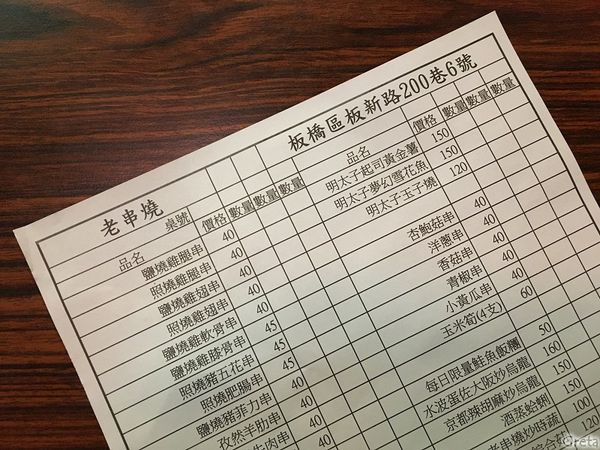 老串燒
桌號
品名 價格 數量 數量 數量
鹽燒雞腿串 40
照燒雞腿串 40
鹽燒雞翅串 40
照燒雞翅串 40
鹽燒雞軟骨串 40
鹽燒雞膝骨串 45
照燒豬五花串 45
照燒肥腸串 45
鹽燒豬菲力串 40
孜然羊肋串 40
牛肉串 40
板橋區板新路200巷6號
品名 價格 數量 數量 數量
明太子起司黃金薯 150
明太子夢幻雪花魚 150
明太子玉子燒 120
杏鮑菇串 40
洋蔥串 40
香菇串 40
青椒串 40
小黃瓜串 40
玉米筍(4支) 60
每日限量鮭魚飯糰 50
水波蛋佐大阪炒烏龍 160
京都辣胡麻炒烏龍 150
酒蒸蛤蜊 150
老串燒炒時蔬 100
綜合 120